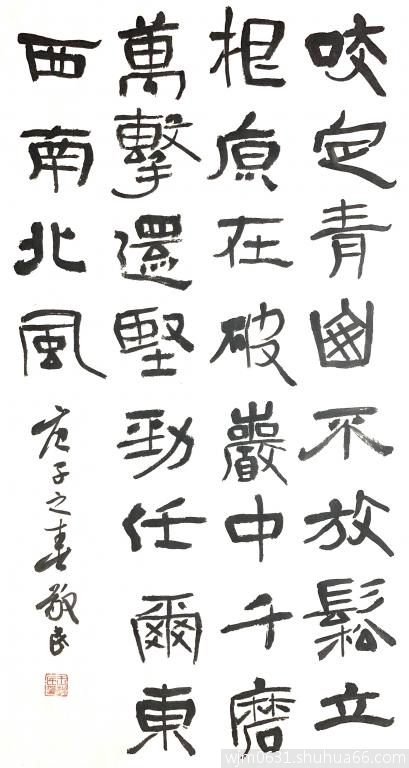 咬定青山不放鬆立
根原在破巖中千磨
萬擊還堅勁任爾東
西南北風
庚子之春敬民
wjm0631.shuhua66.com